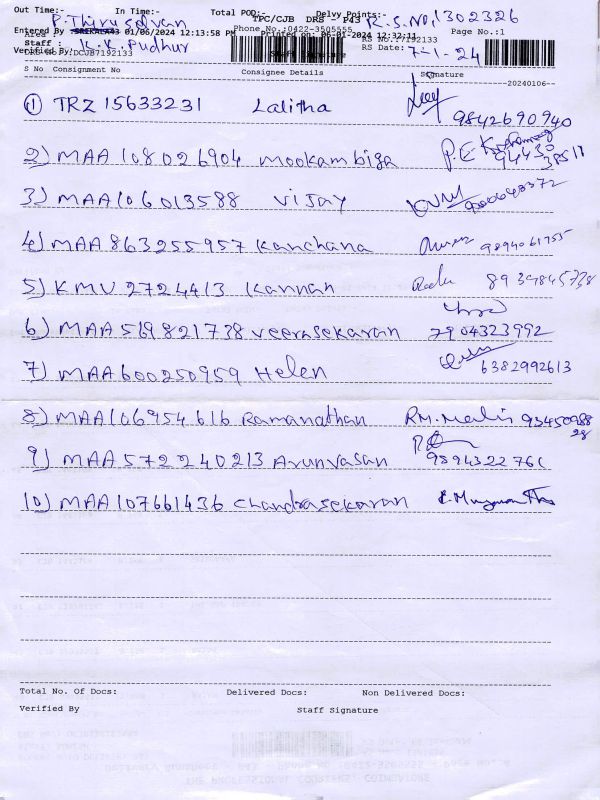 Out Time:- In Time:- Total POD:- Delvy Points:-
P. Thiruselvan TPC/CJB DRS - P43 R.S.NO, 1302326
Entered By 01/06/2024 12:13:58 PM Phone No.:0422-3505555 Printed on: 06-01-2024 12:32:11 Page No.:1
Staff : K.K. Pudhur RS Date: 7-1-24
Verified By:
S No Consignment No Consignee Details Signature
20240106--
1 TRZ 15633231 Lalitha 9842690940
2) MAA 108026904 Mookambiga
3) MAA 106013588 Vijay
4) MAA 863255957 Kanchana 9894061755
5) KMU 2724413 Kannan 8939845738
6) MAA 569821738 Veerasekaran 7904323992
7) MAA 600250959 Helen 6382992613
8) MAA 106954616 Ramanathan 9345098828
9) MAA 572240213 Arunvasan
10) MAA 107661436 Chandrasekaran
Total No. Of Docs: Delivered Docs: Non Delivered Docs:
Verified By Staff Signature